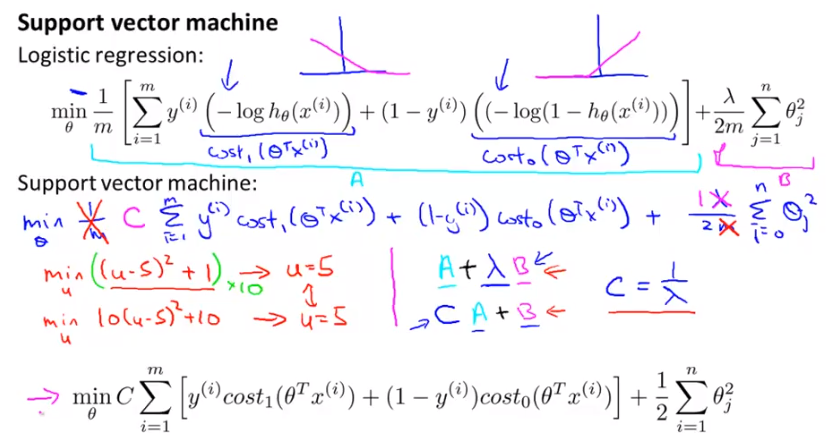 Support vector machine
Logistic regression:
min_θ 1/m [ Σ_{i=1}^{m} y^{(i)} (−log h_θ(x^{(i)})) + (1 − y^{(i)}) ((−log(1 − h_θ(x^{(i)})))) ] + λ/2m Σ_{j=1}^{n} θ_j^2
cost_1(θ^T x^{(i)}) cost_0(θ^T x^{(i)})
A B
Support vector machine:
min_θ 1/m C Σ_{i=1}^{m} y^{(i)} cost_1(θ^T x^{(i)}) + (1−y^{(i)}) cost_0(θ^T x^{(i)}) + 1λ/2m Σ_{i=0}^{n} θ_j^2
min_u ((u−5)^2 + 1) ×10 → u=5 A + λB ← C = 1/λ
min_u 10(u−5)^2 + 10 → u=5 → C A + B ←
→ min_θ C Σ_{i=1}^{m} [ y^{(i)} cost_1(θ^T x^{(i)}) + (1 − y^{(i)}) cost_0(θ^T x^{(i)}) ] + 1/2 Σ_{i=1}^{n} θ_j^2